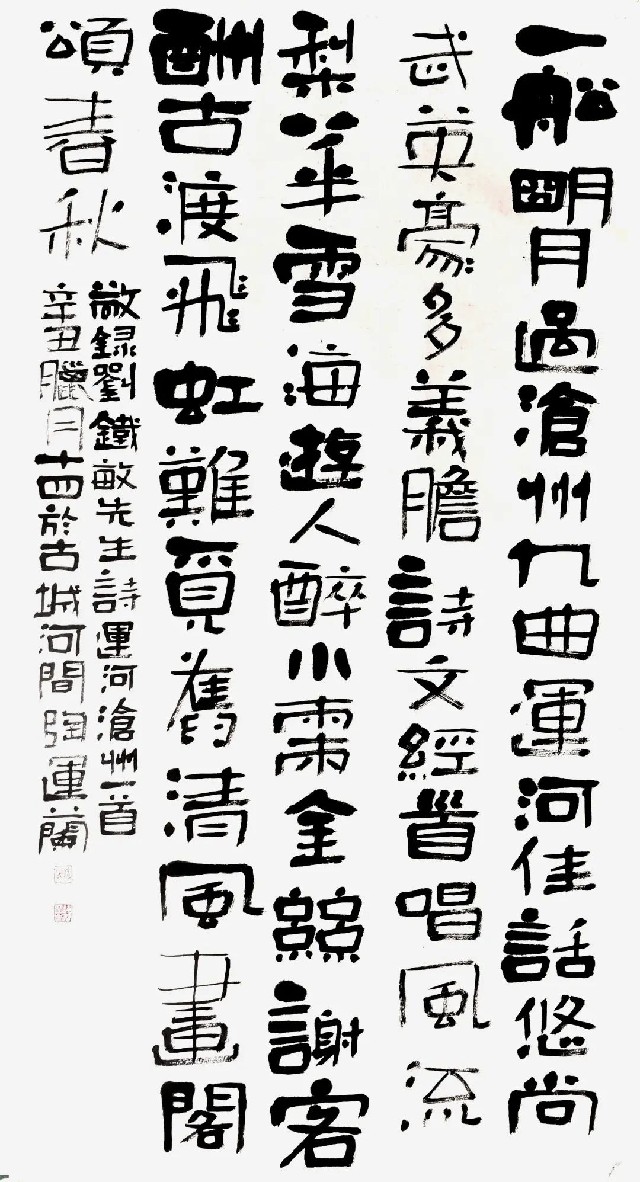 一船明月過滄州九曲運河佳話悠尚
武英豪多義膽詩文經首唱風流
梨花雪海遊人醉小雨金絲謝客
酬古渡飛虹難覓舊清風畫閣
頌春秋
敬錄劉鐵敏先生詩運河滄州一首
辛丑臘月十四於古城河間陶運蘭